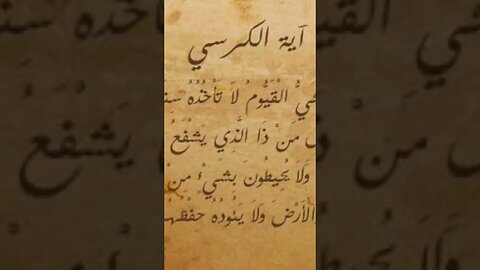 آية الكرسي
الْقَيُّومُ لاَ تَأْخُذُهُ
مَنْ ذَا الَّذِي يَشْفَعُ
وَلاَ يُحِيطُونَ بِشَيْءٍ مِنْ
الْأَرْضَ وَلاَ يَئُودُهُ حِفْظُهُ